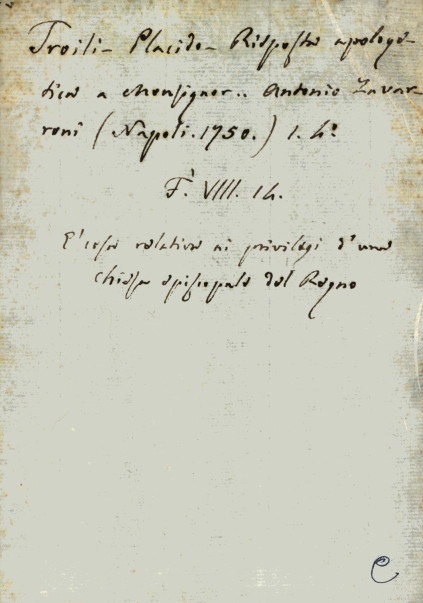 Troili- Placido- Risposta apologe-
tica a Monsignor.. Antonio Zavar-
roni (Napoli. 1750.) 1. 4º
F. VIII. 14.
E' cosa relativa ai privilegi d'una
Chiesa episcopale del Regno
C